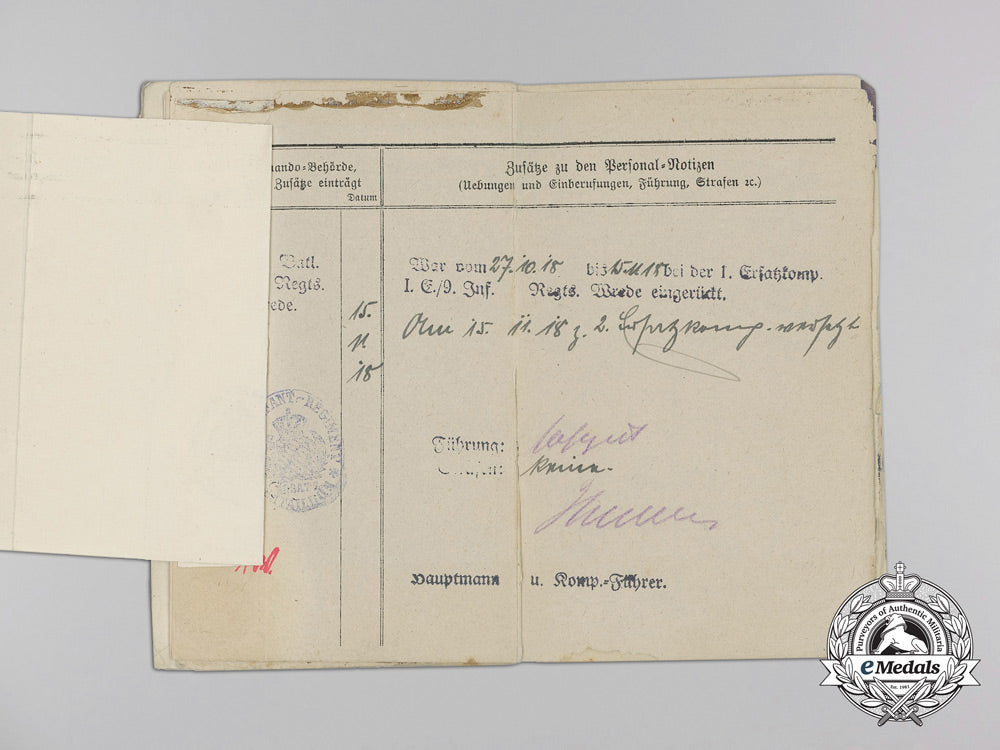 mando-Behörde,
Zusätze einträgt
Datum
Zusätze zu den Personal-Notizen
(Uebungen und Einberufungen, Führung, Strafen ꝛc.)
Batl.
Regts.
ede.
15.
11.
18
War vom 27.10.18 bis 15.11.18 bei der 1. Ersatzkomp.
I. E./9. Inf. Regts. Wrede eingerückt.
Am 15. 11. 18 z. 2. Ersatzkomp. versetzt
ANT-REGIMENT
Führung: sehr gut
Strafen: keine.
Hauptmann u. Komp.-Führer.
Purveyors of Authentic Militaria
eMedals
Est. 1985